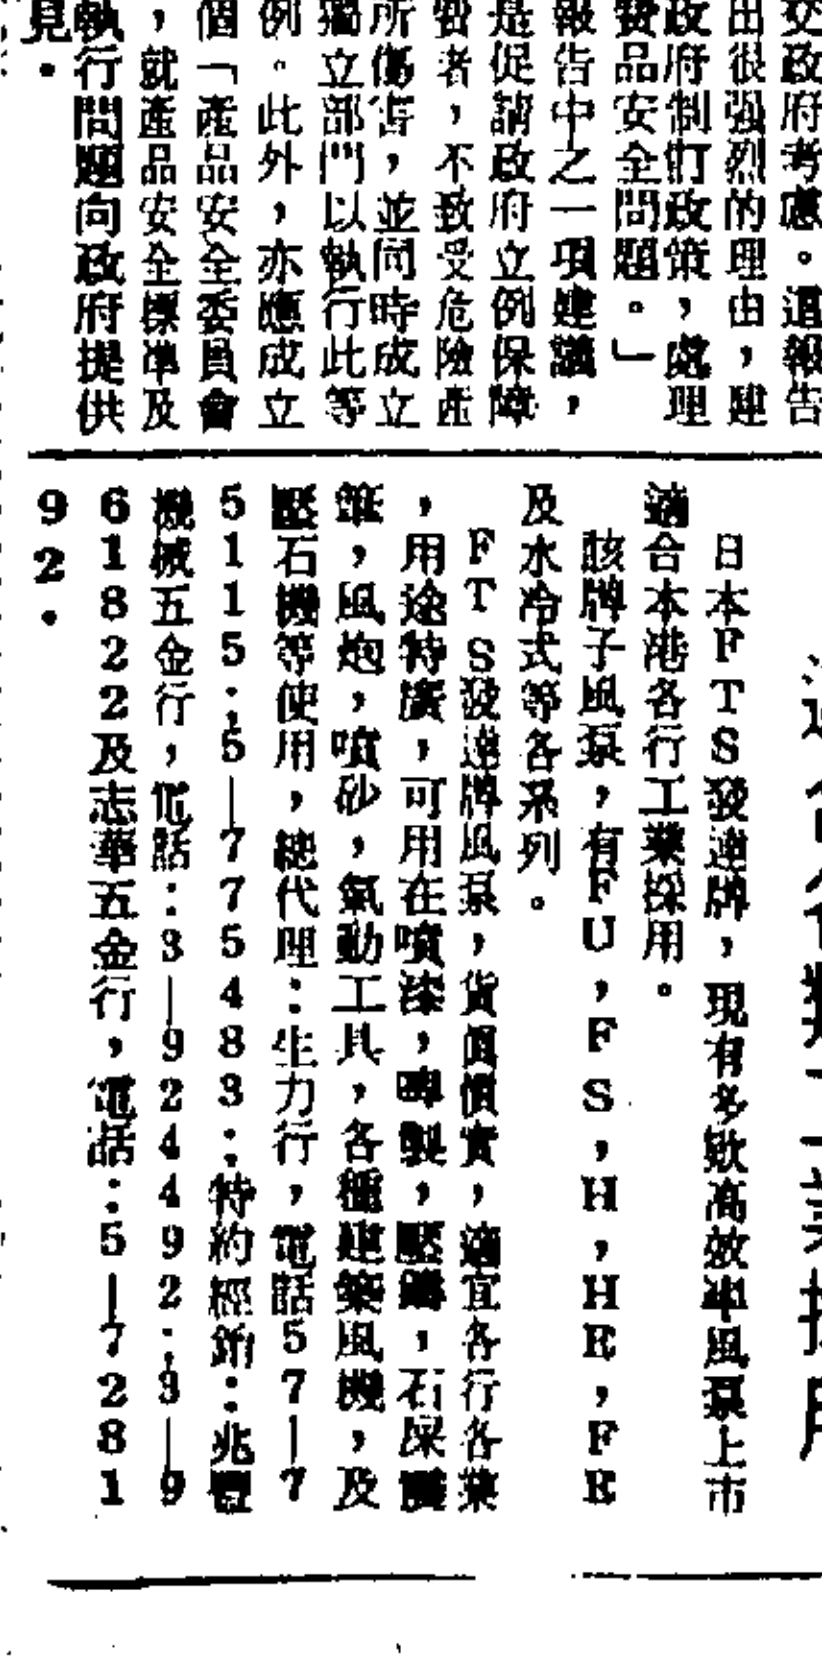 交政府考慮。這報告
出很强烈的理由，建
政府制訂政策，處理
費品安全問題。」
報告中之一項建議，
是促請政府立例保障
費者，不致受危險產
所傷害，並同時成立
獨立部門以執行此等
例。此外，亦應成立
個「產品安全委員會
，就產品安全標準及
執行問題向政府提供
見。
日本FTS發達牌，現有多欵高效率風泵上市
適合本港各行工業採用。
該牌子風泵，有FU，FS，H，HE，FE
及水冷式等各系列。
FTS發達牌風泵，貨眞價實，適宜各行各業
，用途特廣，可用在噴漆，啤製，壓鑄，石屎
筆，風炮，噴砂，氣動工具，各種建築風機，及
壓石機等使用，總代理：生力行，電話57—7
5115；5—775483；特約經銷：兆豐
機械五金行，電話：3—924492；3—9
61822及志華五金行，電話：5—7281
92．